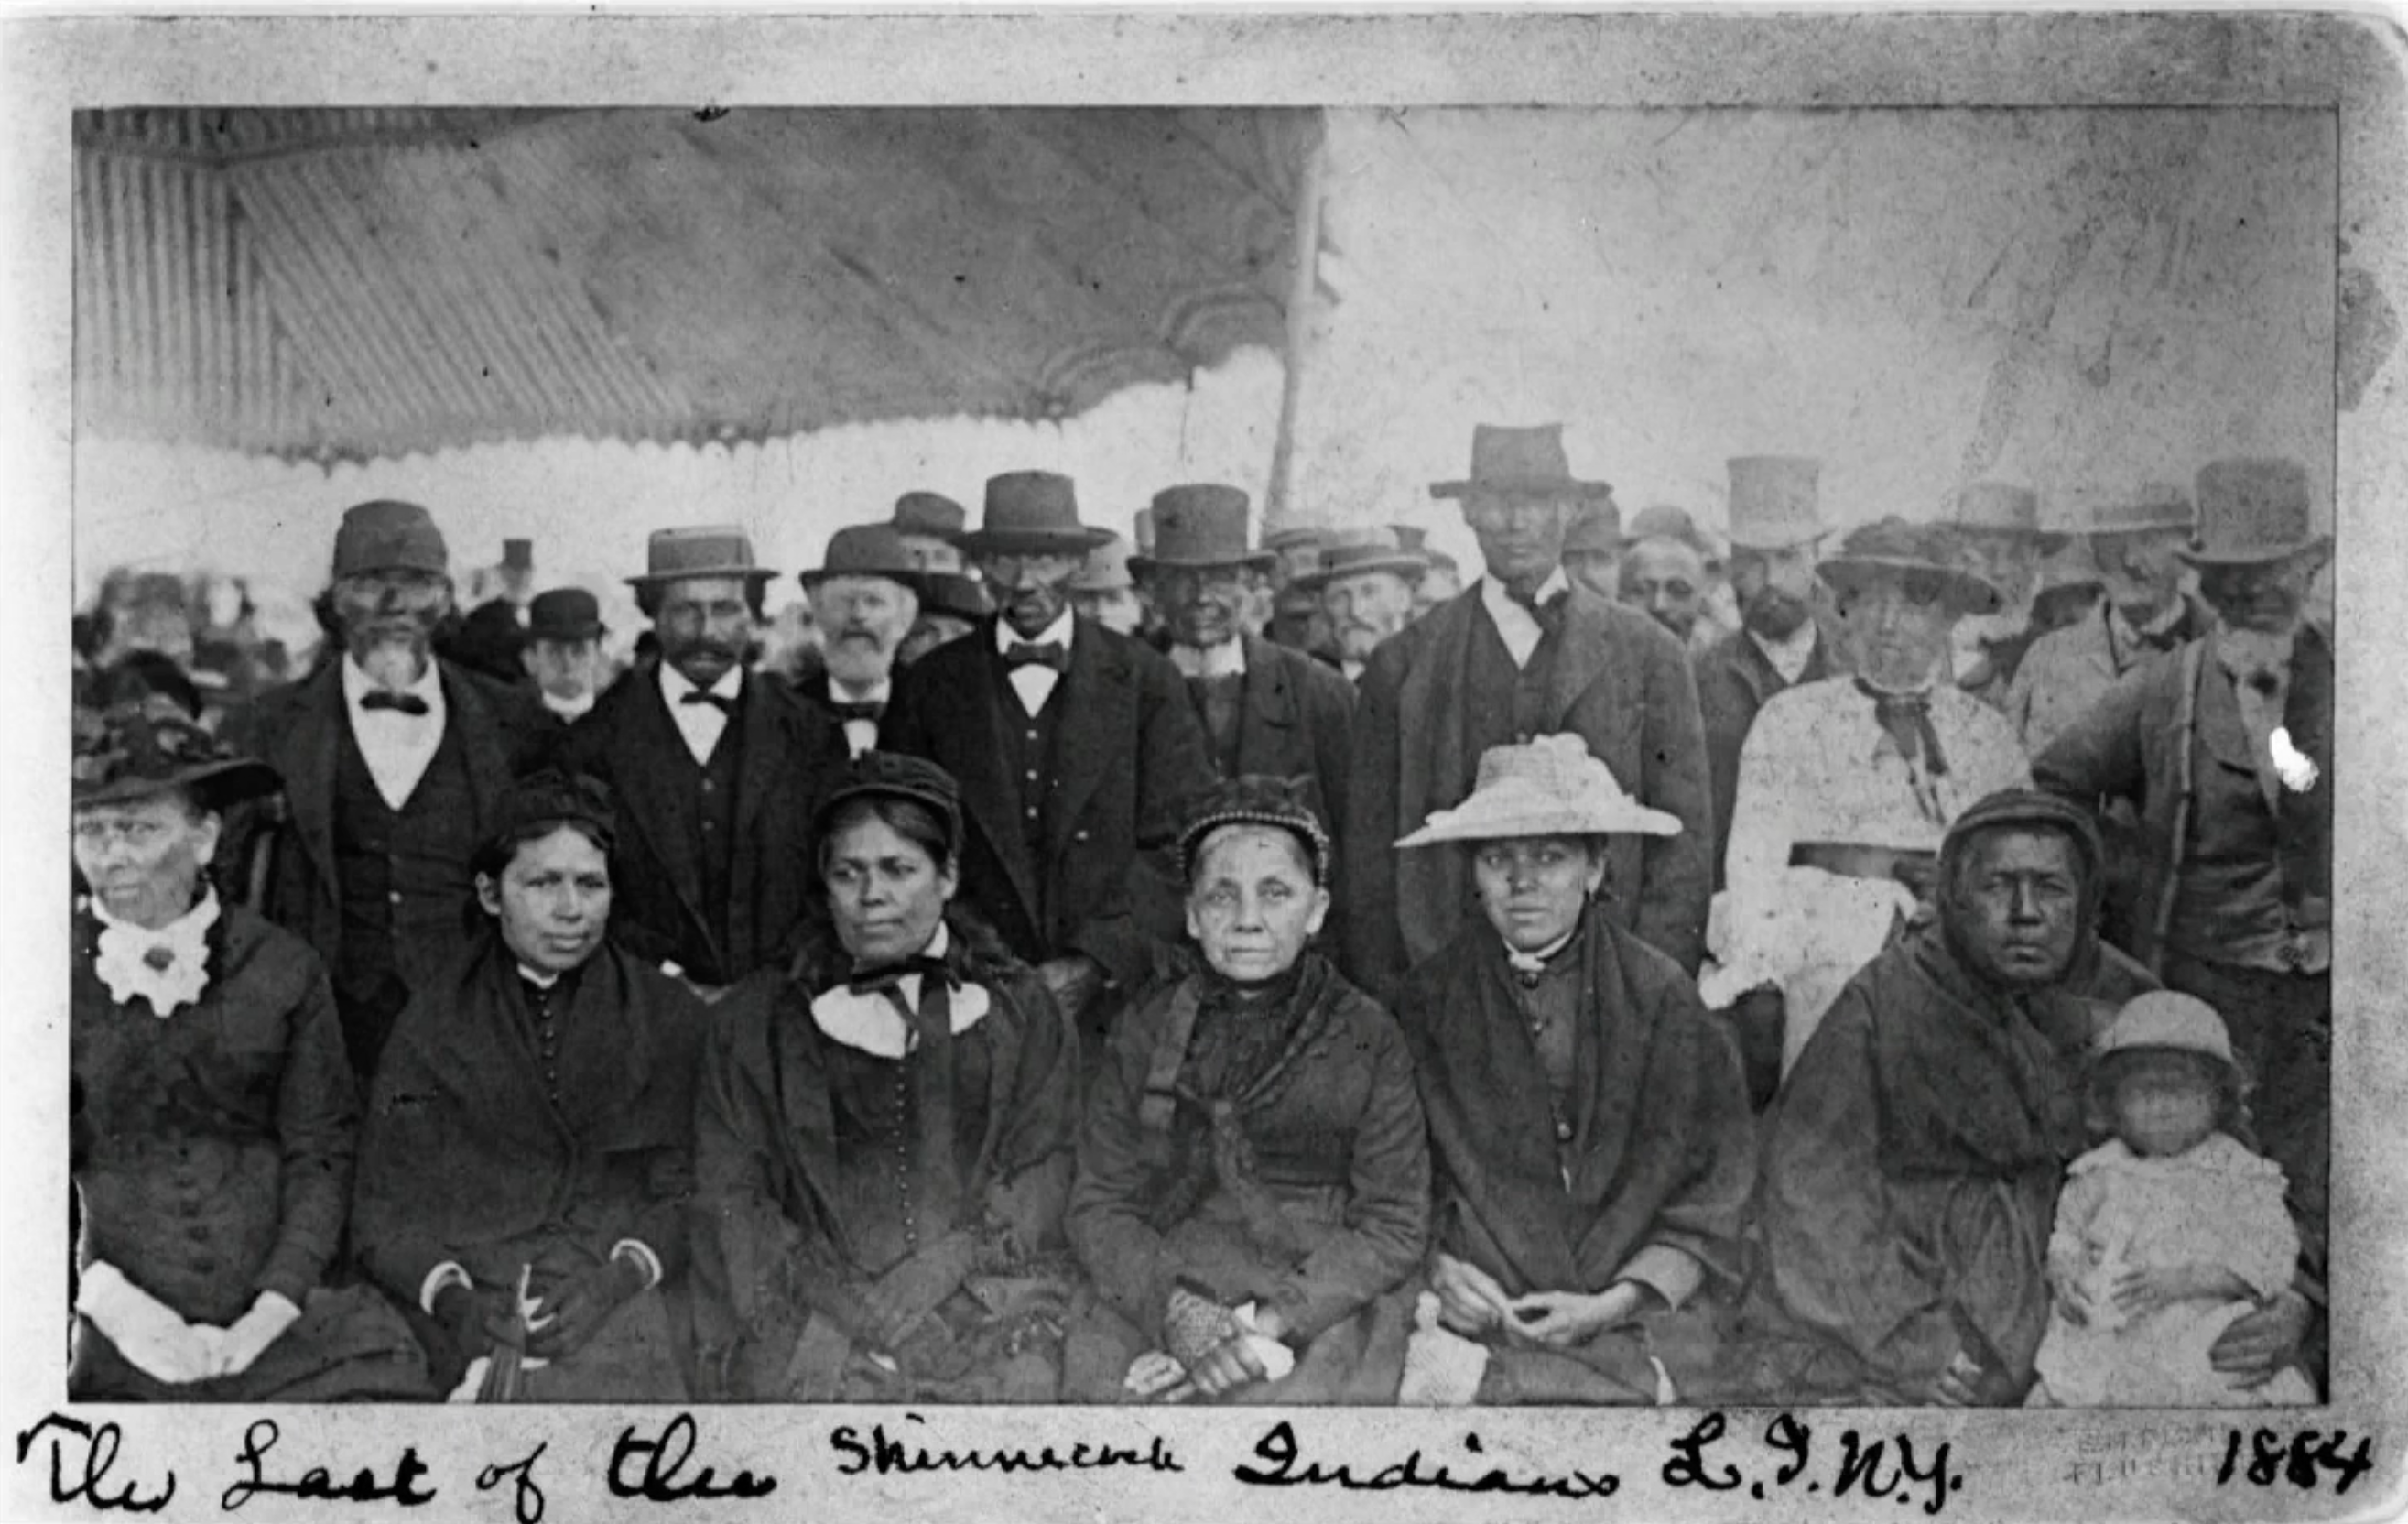 The Last of the Shinnecock Indians L.I.N.Y. 1884